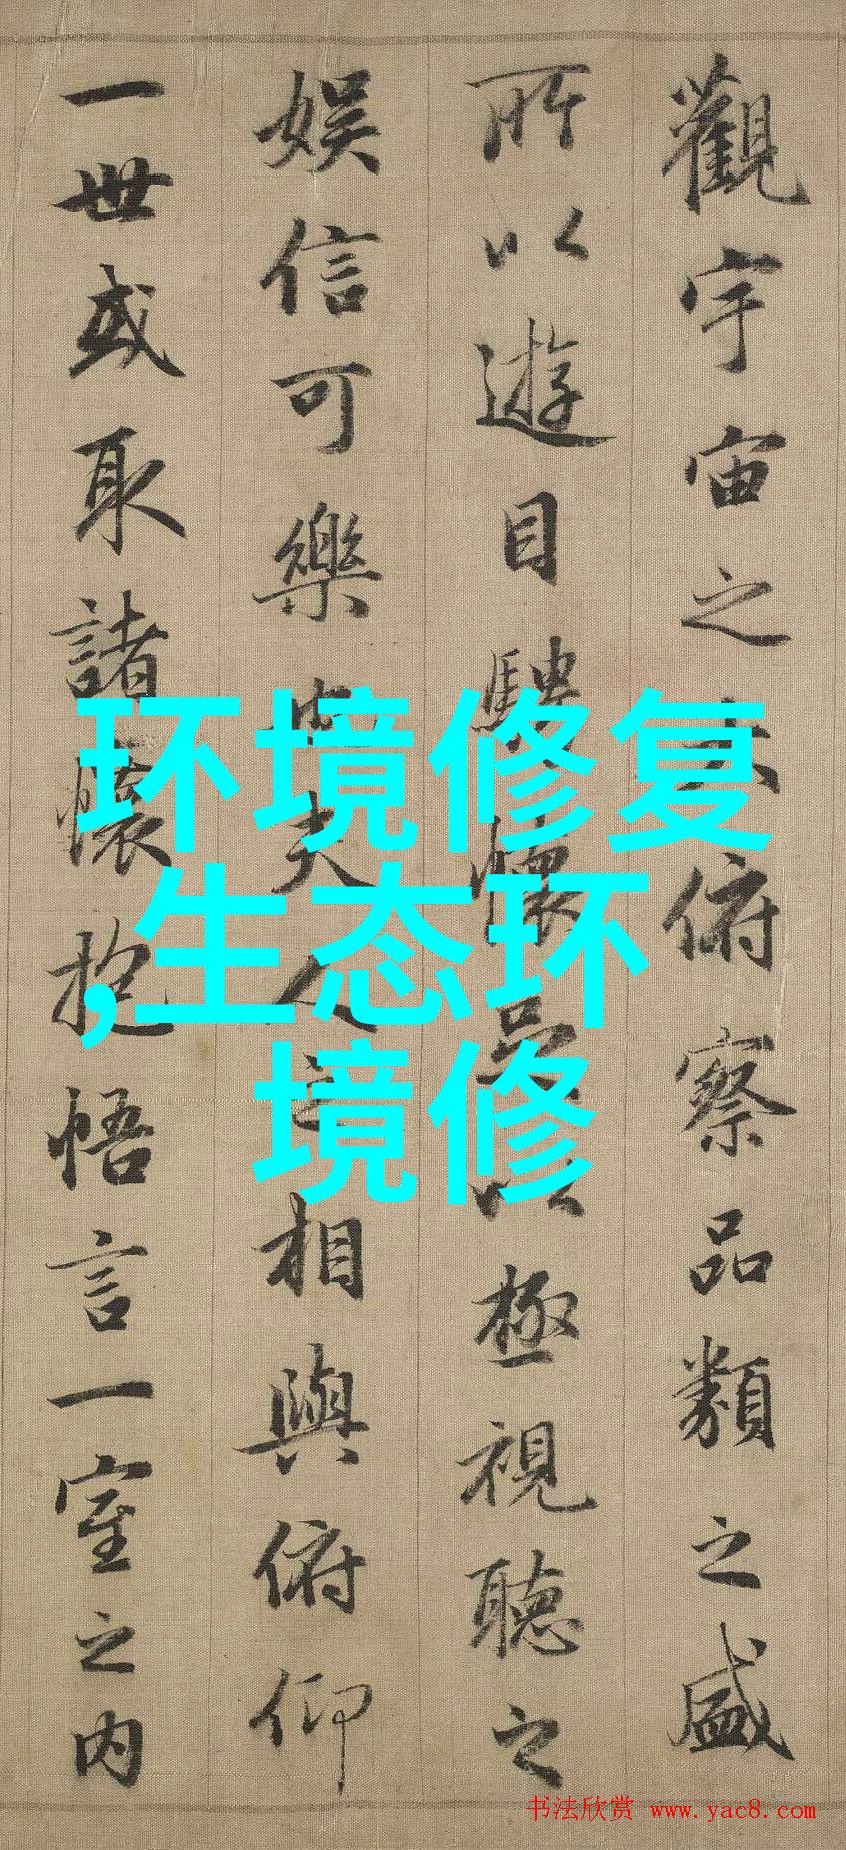 觀宇宙之大俯察品類之盛
所以遊目騁懷足以極視聽之
娛信可樂也夫人之相與俯仰
一世或取諸懷抱悟言一室之內
环境修复
,生态环
境修
书法欣赏 www.yac8.com